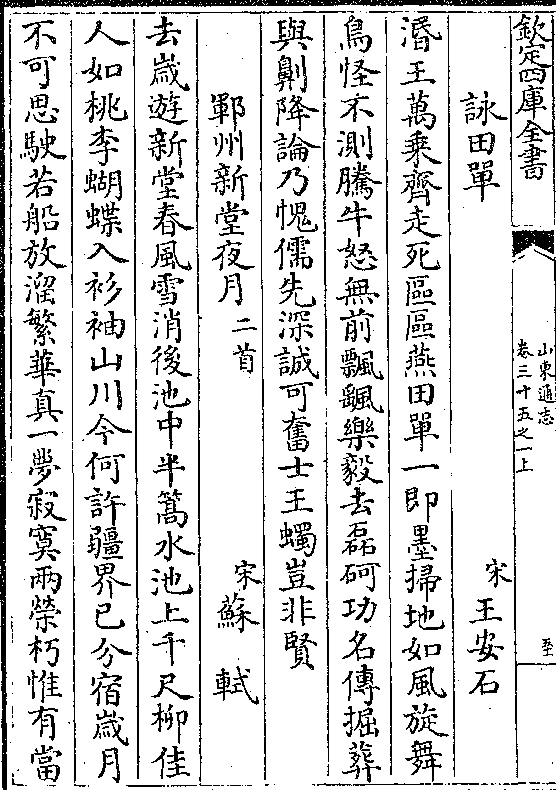 欽定四庫全書
山東通志
卷三十五之一上
詠田單
宋王安石
湣王萬乗齊走死區區燕田單一即墨掃地如風旋舞
鳥怪不測騰牛怒無前飄颻樂毅去磊砢功名傳掘葬
與劓降論乃愧儒先深誠可奮士王蠋豈非賢
鄆州新堂夜月二首
宋蘇軾
去嵗遊新堂春風雪消後池中半篙水池上千尺柳佳
人如桃李蝴蝶入衫袖山川今何許疆界已分宿嵗月
不可思駛若船放溜繁華真一夢寂寞兩榮朽惟有當